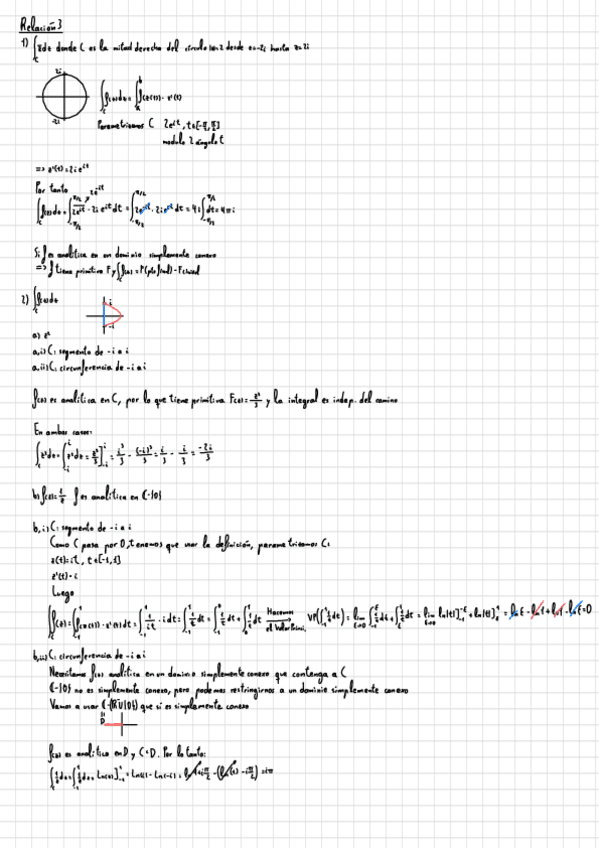 Relación 3
1) ∫_C z̄ dz donde C es la mitad derecha del círculo |z|=2 desde z=-2i hasta z=2i
2i
-2i
∫_C f(z)dz = ∫_a^b f(z(t))·z'(t)
Parametrizamos C 2e^{it}, t∈[-π/2, π/2]
modulo 2 ángulo t
=> z'(t)=2ie^{it}
Por tanto
2e^{-it}
∫_C f(z)dz = ∫_{-π/2}^{π/2} 2e^{it}·2ie^{it}dt = ∫_{-π/2}^{π/2} 2e^{-it}·2ie^{it}dt = 4i∫_{-π/2}^{π/2} dt = 4πi
Si f es analítica en un dominio simplemente conexo
=> f tiene primitiva F y ∫_C f(z) =
2) ∫_C f(z)dz
i
-i
a) z²
a,i) C: segmento de -i a i
a,ii) C: circunferencia de -i a i
f(z) es analítica en C, por lo que tiene primitiva F(z)= z³/3 y la integral es indep. del camino
En ambos casos:
∫_C z²dz = ∫_{-i}^{i} z²dz = z³/3]_{-i}^{i} = i³/3 - (-i)³/3 = i/3 - i/3 = -2i/3
b) f(z)=1/z f es analítica en C-{0}
b,i) C: segmento de -i a i
Como C pasa por 0, tenemos que usar la definición, parametrizamos C:
z(t)=it, t∈[-1,1]
z'(t)=i
Luego
∫_C f(z) = ∫_{-1}^{1} f(z(t))·z'(t)dt = ∫_{-1}^{1} 1/it · i dt = ∫_{-1}^{1} 1/t dt = ∫_{-1}^{0} 1/t dt + ∫_0^1 1/t dt Hacemos el valor princ. VP(∫_{-1}^{1} 1/t dt) = lim_{ε→0} ∫_{-1}^{-ε} 1/t dt + ∫_ε^1 1/t dt = lim_{ε→0} ln|t|]_{-1}^{-ε} + ln|t|]_ε^1 = ln ε - ln 1 + ln 1 - ln ε = 0
b,ii) C: circunferencia de -i a i
Necesitamos f(z) analítica en un dominio simplemente conexo que contenga a C
C-{0} no es simplemente conexo, pero podemos restringirnos a un dominio simplemente conexo
Vamos a usar C-(R⁻∪{0}) que si es simplemente conexo
D
f(z) es analítica en D y C⊂D. Por lo tanto:
∫_C 1/z dz = ∫_{-i}^{i} 1/z dz = Ln(z)]_{-i}^{i} = Ln(i) - Ln(-i) = ln(1)+iπ/2 - (ln(1) - iπ/2) = iπ